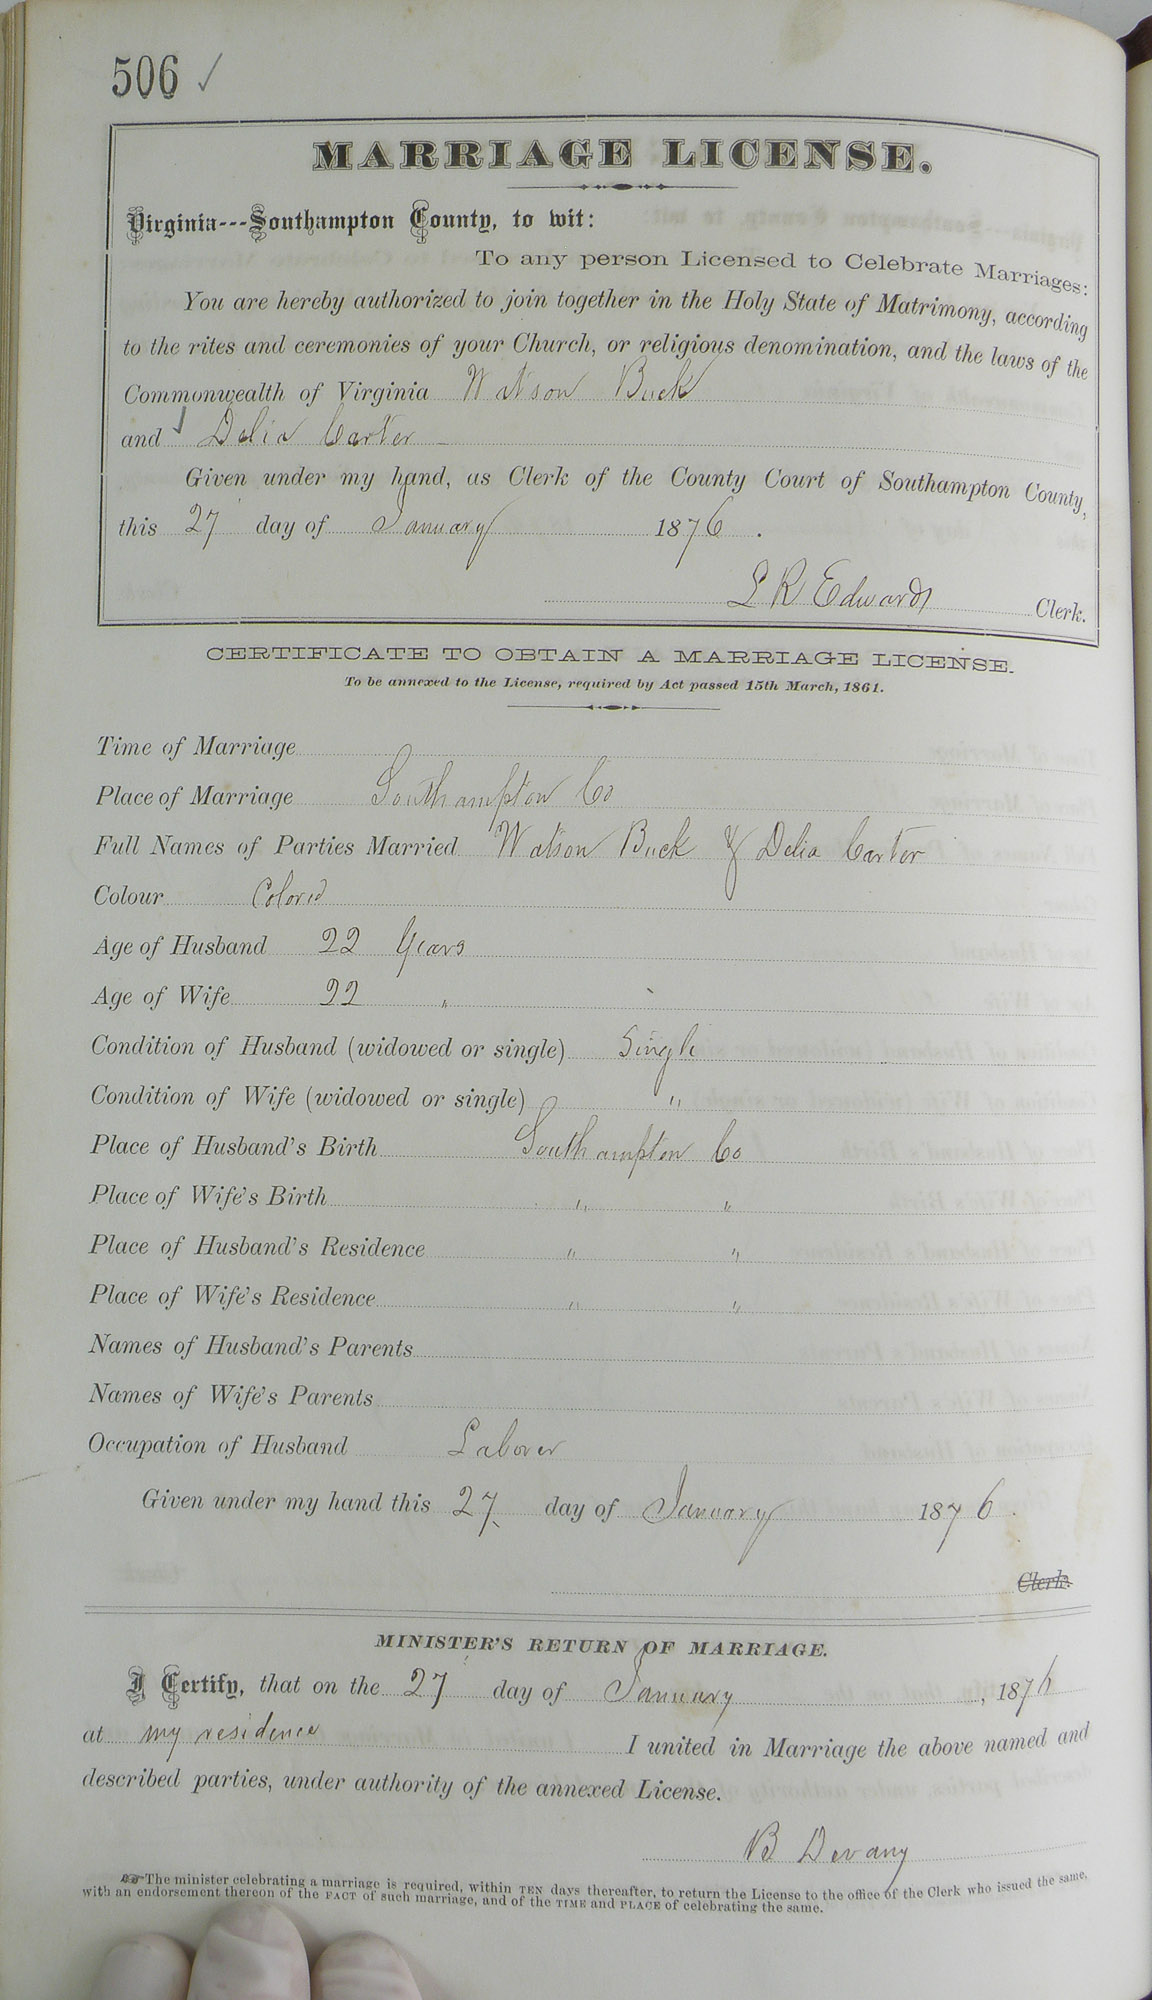 506 ✓
MARRIAGE LICENSE.
Virginia---Southampton County, to wit:
To any person Licensed to Celebrate Marriages:
You are hereby authorized to join together in the Holy State of Matrimony, according
to the rites and ceremonies of your Church, or religious denomination, and the laws of the
Commonwealth of Virginia Watson Buck
and ✓ Delia Carter
Given under my hand, as Clerk of the County Court of Southampton County,
this 27 day of January 1876.
L R Edwards Clerk.
CERTIFICATE TO OBTAIN A MARRIAGE LICENSE.
To be annexed to the License, required by Act passed 15th March, 1861.
Time of Marriage
Place of Marriage Southampton Co
Full Names of Parties Married Watson Buck & Delia Carter
Colour Colored
Age of Husband 22 Years
Age of Wife 22 "
Condition of Husband (widowed or single) Single
Condition of Wife (widowed or single) "
Place of Husband's Birth Southampton Co
Place of Wife's Birth " "
Place of Husband's Residence " "
Place of Wife's Residence " "
Names of Husband's Parents
Names of Wife's Parents
Occupation of Husband Laborer
Given under my hand this 27 day of January 1876.
Clerk.
MINISTER'S RETURN OF MARRIAGE.
I Certify, that on the 27 day of January, 1876
at my residence I united in Marriage the above named and
described parties, under authority of the annexed License.
B Devany
☞The minister celebrating a marriage is required, within TEN days thereafter, to return the License to the office of the Clerk who issued the same,
with an endorsement thereon of the FACT of such marriage, and of the TIME and PLACE of celebrating the same.